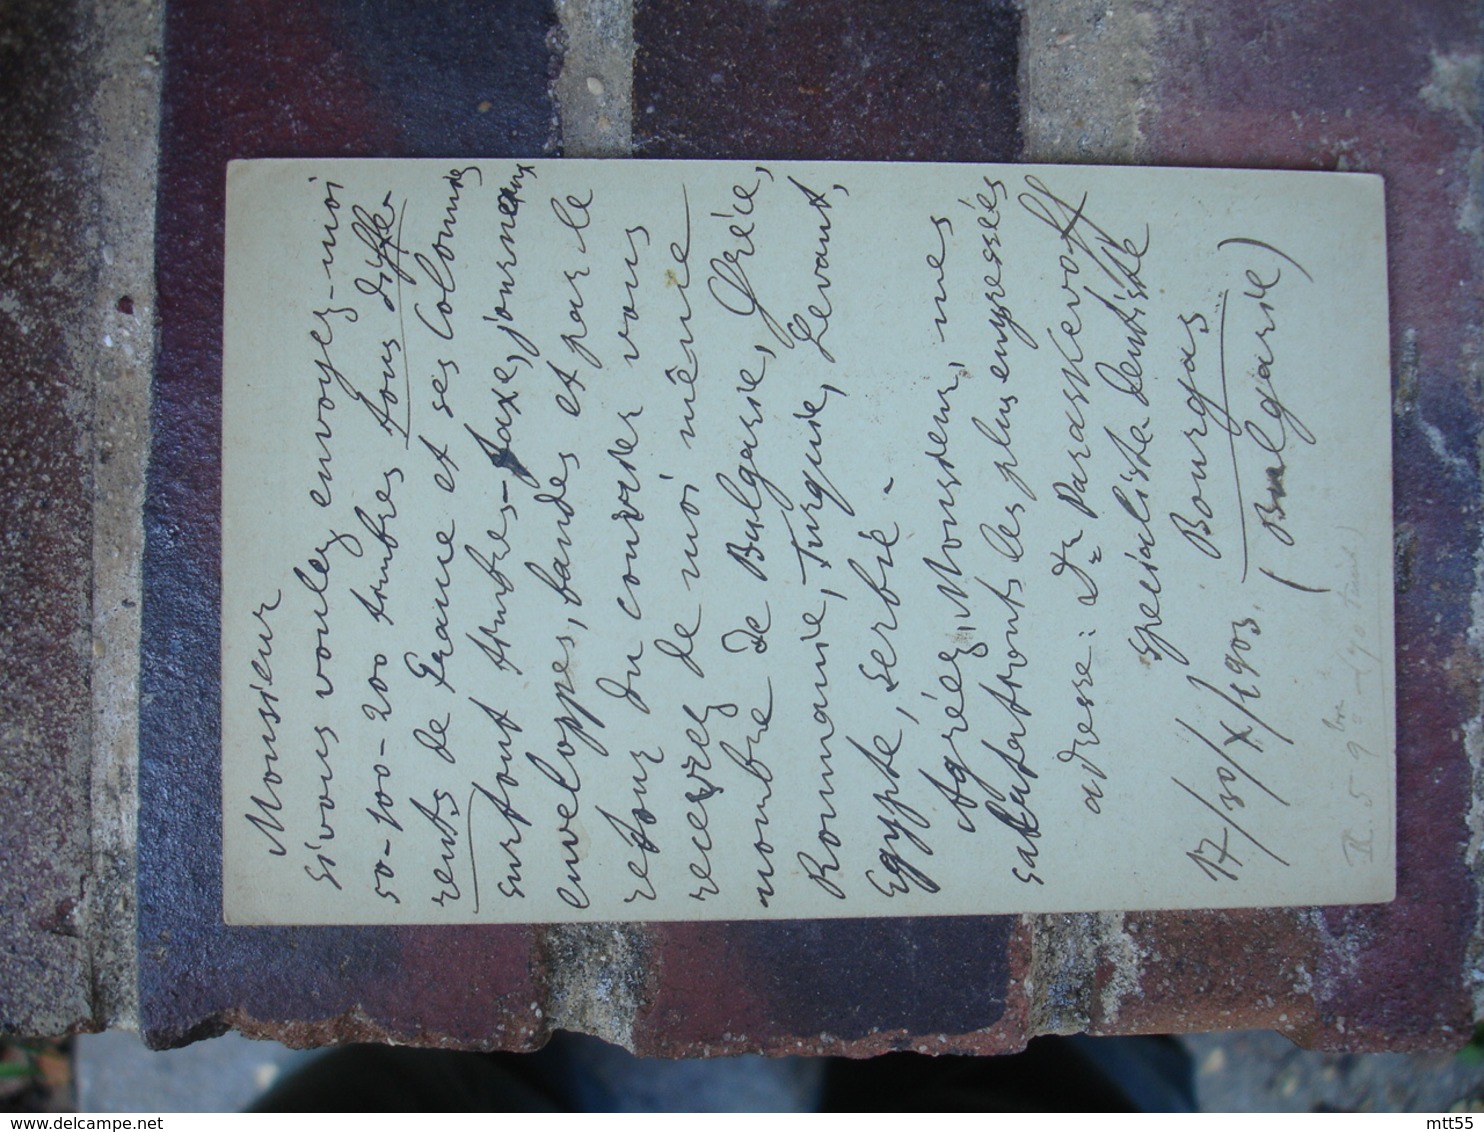 Monsieur
si vous voulez envoyez-moi
50-100-200 timbres tous diffe-
rents de France et ses Colonnies
surtout timbres-taxe, journeaux
enveloppes, bandes et par le
retour du courrier vous
recevrez de moi même
nombre de Bulgarie, Grèce,
Roumanie, Turquie, Levant,
Egypte, Serbie.-
Agréez, Monsieur, mes
salutations les plus empressées
adresse: Dr Paraskevoff
specialiste dentiste
Bourgas
17/30/X/1903. (Bulgarie)
R. 5 9bre
delcampe.net
mtt55